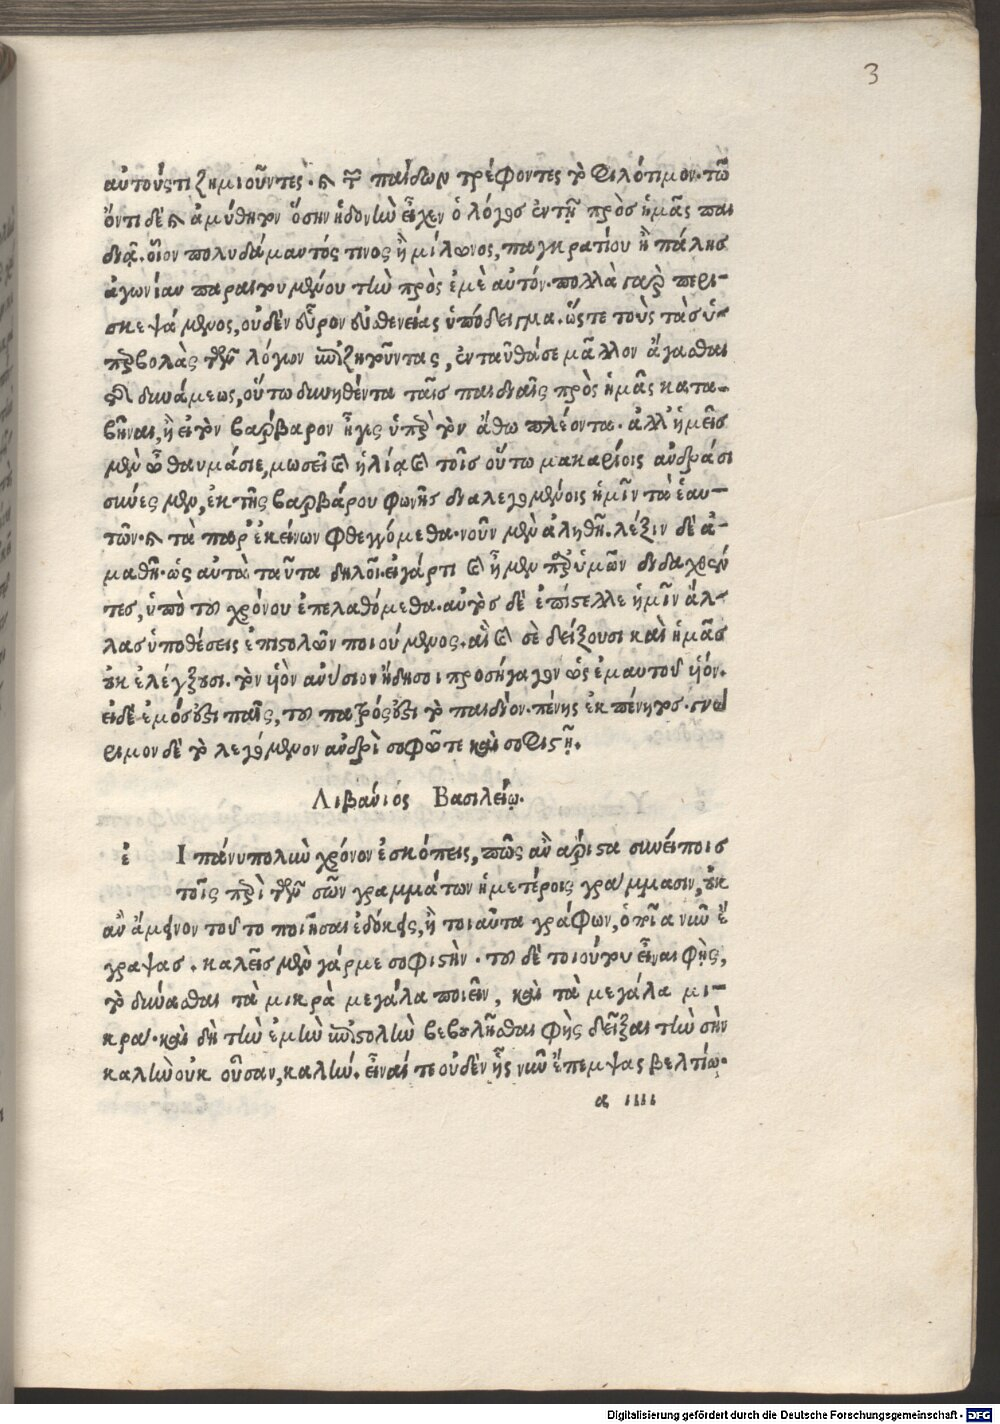 3
αὐτούς τι ζημιοῦντες. καὶ τῶν παίδων τρέφοντες τὸ φιλότιμον. τῷ
ὄντι δὲ καὶ ἀμύθητον ὅσην ἡδονὴν εἶχεν ὁ λόγος ἐν τῇ πρὸς ἡμᾶς παι
διᾷ. οἷον πολυδάμαντός τινος ἢ μίλωνος, παγκρατίου ἢ πάλης
ἀγωνίαν παραιτουμένου τὴν πρὸς ἐμὲ αὐτόν. πολλὰ γὰρ περι-
σκεψάμενος, οὐδὲν εὗρον εὐθενείας ὑπόδειγμα. ὥςτε τοὺς τὰς ὑ-
περβολὰς τῶν λόγων ἐπιζητοῦντας, ἐνταῦθά σε μᾶλλον ἄγασθαι
τῆς δυνάμεως, οὕτω δυνηθέντα ταῖς παιδιαῖς πρὸς ἡμᾶς κατα-
βῆναι, ἢ εἰ τὸν βάρβαρον ἦγες ὑπὲρ τὸν ἄθω πλέοντα. ἀλλ' ἡμεῖς
μὲν ὦ θαυμάσιε, μωσεῖ καὶ ἠλίᾳ καὶ τοῖς οὕτω μακαρίοις ἀνδράσι
σύνεσμεν, ἐκ τῆς βαρβάρου φωνῆς διαλεγομένοις ἡμῖν τὰ ἑαυ-
τῶν. καὶ τὰ παρ' ἐκείνων φθεγγόμεθα. νοῦν μὲν ἀληθῆ. λέξιν δὲ ἀ-
μαθῆ. ὡς αὐτὰ ταῦτα δηλοῖ. εἰ γάρ τι καὶ ἦμεν παρ' ὑμῶν διδαχθέν
τες, ὑπὸ τοῦ χρόνου ἐπελαθόμεθα. αὐτὸς δὲ ἐπίστελλε ἡμῖν ἄλ-
λας ὑποθέσεις ἐπιστολῶν ποιούμενος. αἳ καὶ σὲ δείξουσι καὶ ἡμᾶς
οὐκ ἐλέγξουσι. τὸν υἱὸν ἀνυσίου ἤδη σοι προσήγαγον ὡς ἐμαυτοῦ υἱόν.
εἰ δὲ ἐμός ἐστι παῖς, τοῦ πατρός ἐστι τὸ παιδίον. πένης ἐκ πένητος. γνώ
ριμον δὲ τὸ λεγόμενον ἀνδρὶ σοφῷ τε καὶ σοφιστῇ.
Λιβάνιός Βασιλείῳ.
ἐ Ι πάνυ πολὺν χρόνον ἐσκόπεις, πῶς ἂν ἄριστα συνείποις
τοῖς περὶ τῶν σῶν γραμμάτων ἡμετέροις γράμμασιν, οὐκ
ἂν ἄμεινον τοῦτο ποιῆσαι ἐδόκεις, ἢ τοιαῦτα γράφων, ὁποῖα νῦν ἔ
γραψας. καλεῖς μὲν γάρ με σοφιστήν. τοῦ δὲ τοιούτου εἶναι φῂς,
τὸ δύνασθαι τὰ μικρὰ μεγάλα ποιεῖν, καὶ τὰ μεγάλα μι-
κρά. καὶ δὴ τὴν ἐμὴν ἐπιστολὴν βεβουλῆσθαι φῂς δεῖξαι τὴν σὴν
καλὴν οὐκ οὖσαν, καλήν. εἶναί τε οὐδὲν ἧς νῦν ἔπεμψας βελτίω.
α ιιιι
Digitalisierung gefördert durch die Deutsche Forschungsgemeinschaft - DFG